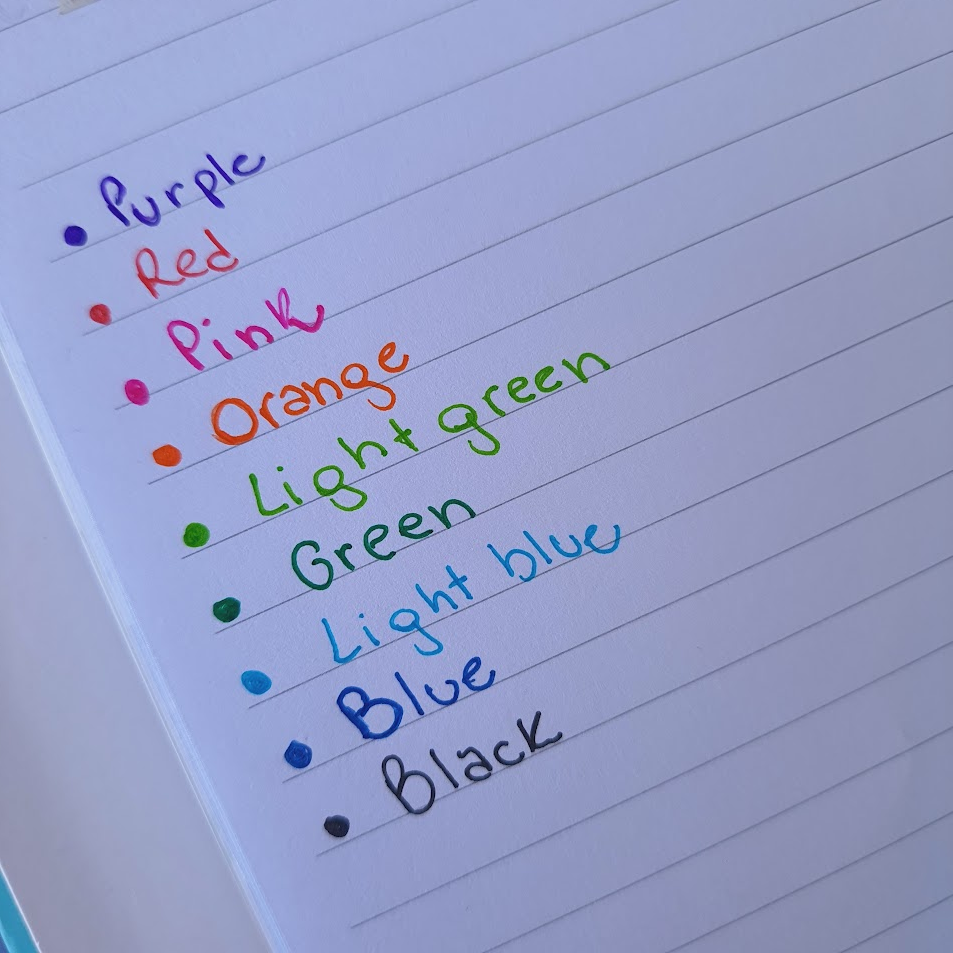 • Purple
• Red
• Pink
• Orange
• Light green
• Green
• Light blue
• Blue
• Black